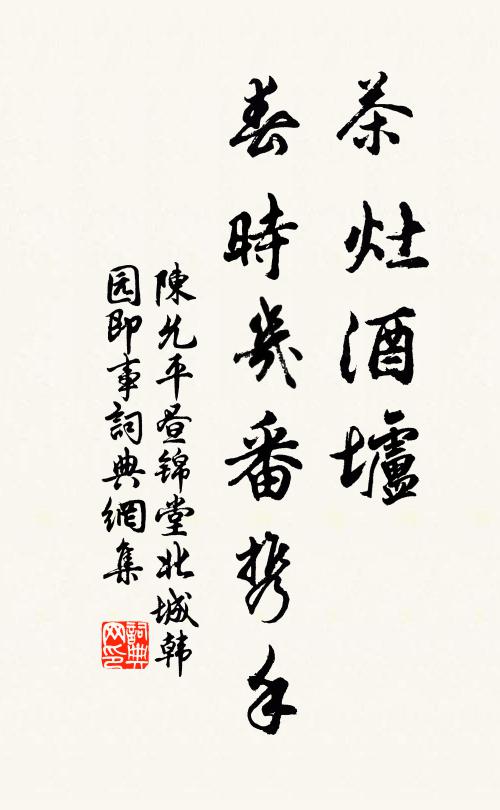 茶灶酒壚
春時幾番携手
陳允平昼锦堂北城韩
园即事詞典網集
詞典网印